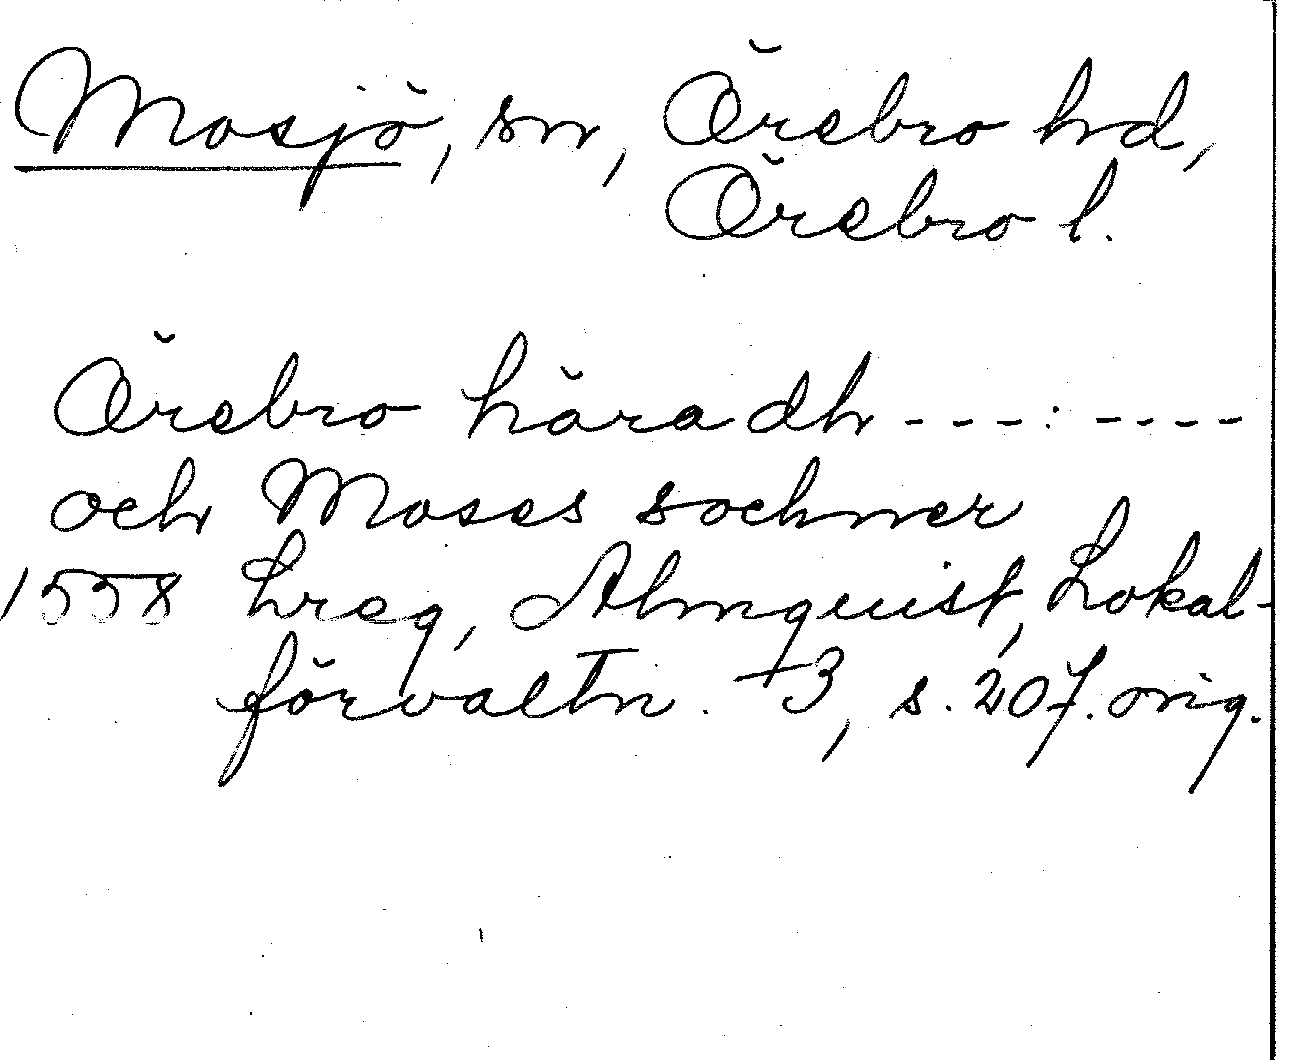 Mosjö, sn, Örebro hd,
Örebro l.
Örebro häradh - - - : - - - -
och Moses sochner
1558 Lreg, Almquist, Lokal-
förvaltn. 3, s. 207. orig.